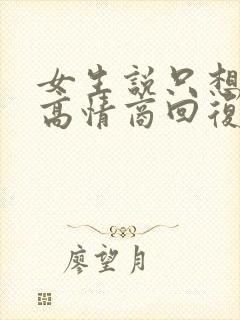 女生說只想
高情商回復
廖望月